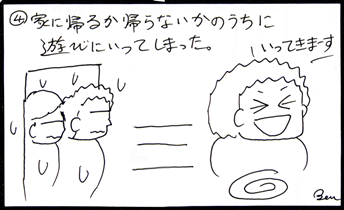 ④家に帰るか帰らないかのうちに
遊びにいってしまった。
いってきます
Ben